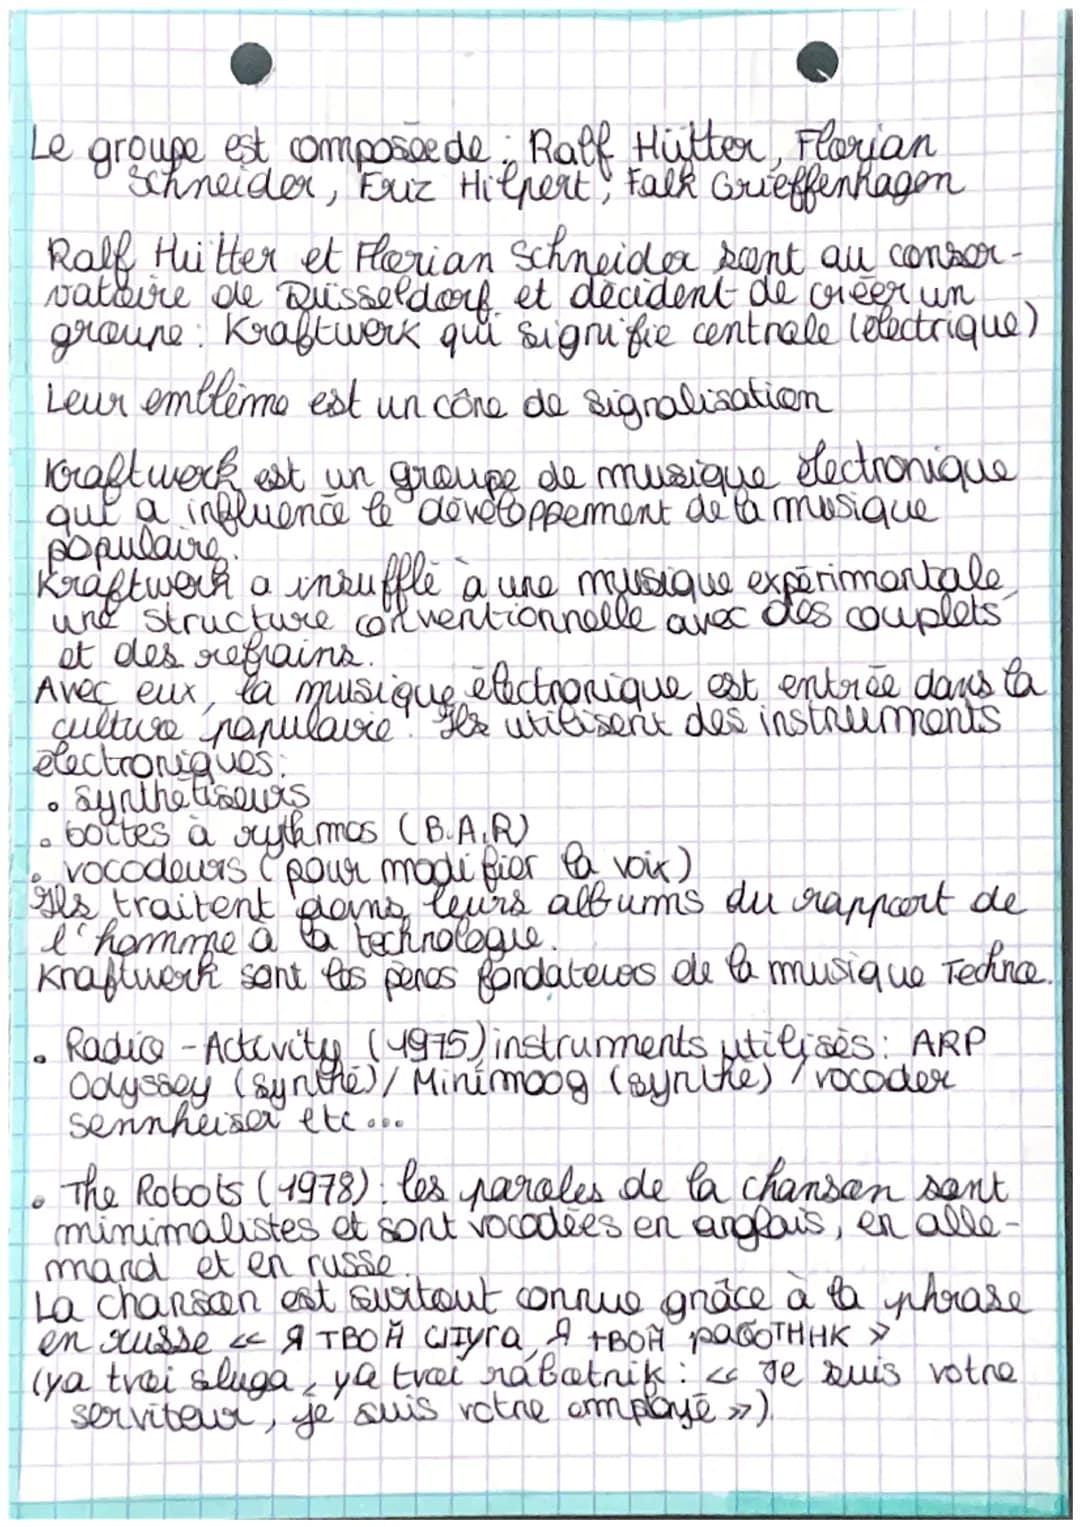 Le groupe est composée de : Ralf Hütter, Florian
Schneider, Friz Hilpert, Falk Grieffenhagen
Ralf Hütter et Florian Schneider sont au conser-
vatoire de Düsseldorf et décident de créer un
groupe : Kraftwerk qui signifie centrale (électrique)
Leur emblème est un cône de signalisation
Kraftwerk est un groupe de musique électronique
qui a influencé le développement de la musique
populaire.
Kraftwerk a insufflé à une musique expérimentale,
une structure conventionnelle avec des couplets
et des refrains.
Avec eux, la musique électronique est entrée dans la
culture populaire. Ils utilisent des instruments
électroniques :
• synthétiseurs
• boîtes à rythmes (B.A.R)
• vocodeurs (pour modifier la voix)
Ils traitent dans leurs albums du rapport de
l'homme à la technologie.
Kraftwerk sont les pères fondateurs de la musique Techno.
• Radio-Activity (1975) instruments utilisés : ARP
Odyssey (synthé) / Minimoog (synthé) / vocoder
sennheiser etc...
• The Robots (1978) : les paroles de la chanson sont
minimalistes et sont vocodées en anglais, en alle-
mand et en russe.
La chanson est surtout connue grâce à la phrase
en russe « Я ТВОЙ слуга, Я ТВОЙ РАБОТНИК »
(ya tvoi sluga, ya tvoi rabotnik : « Je suis votre
serviteur, je suis votre employé »).